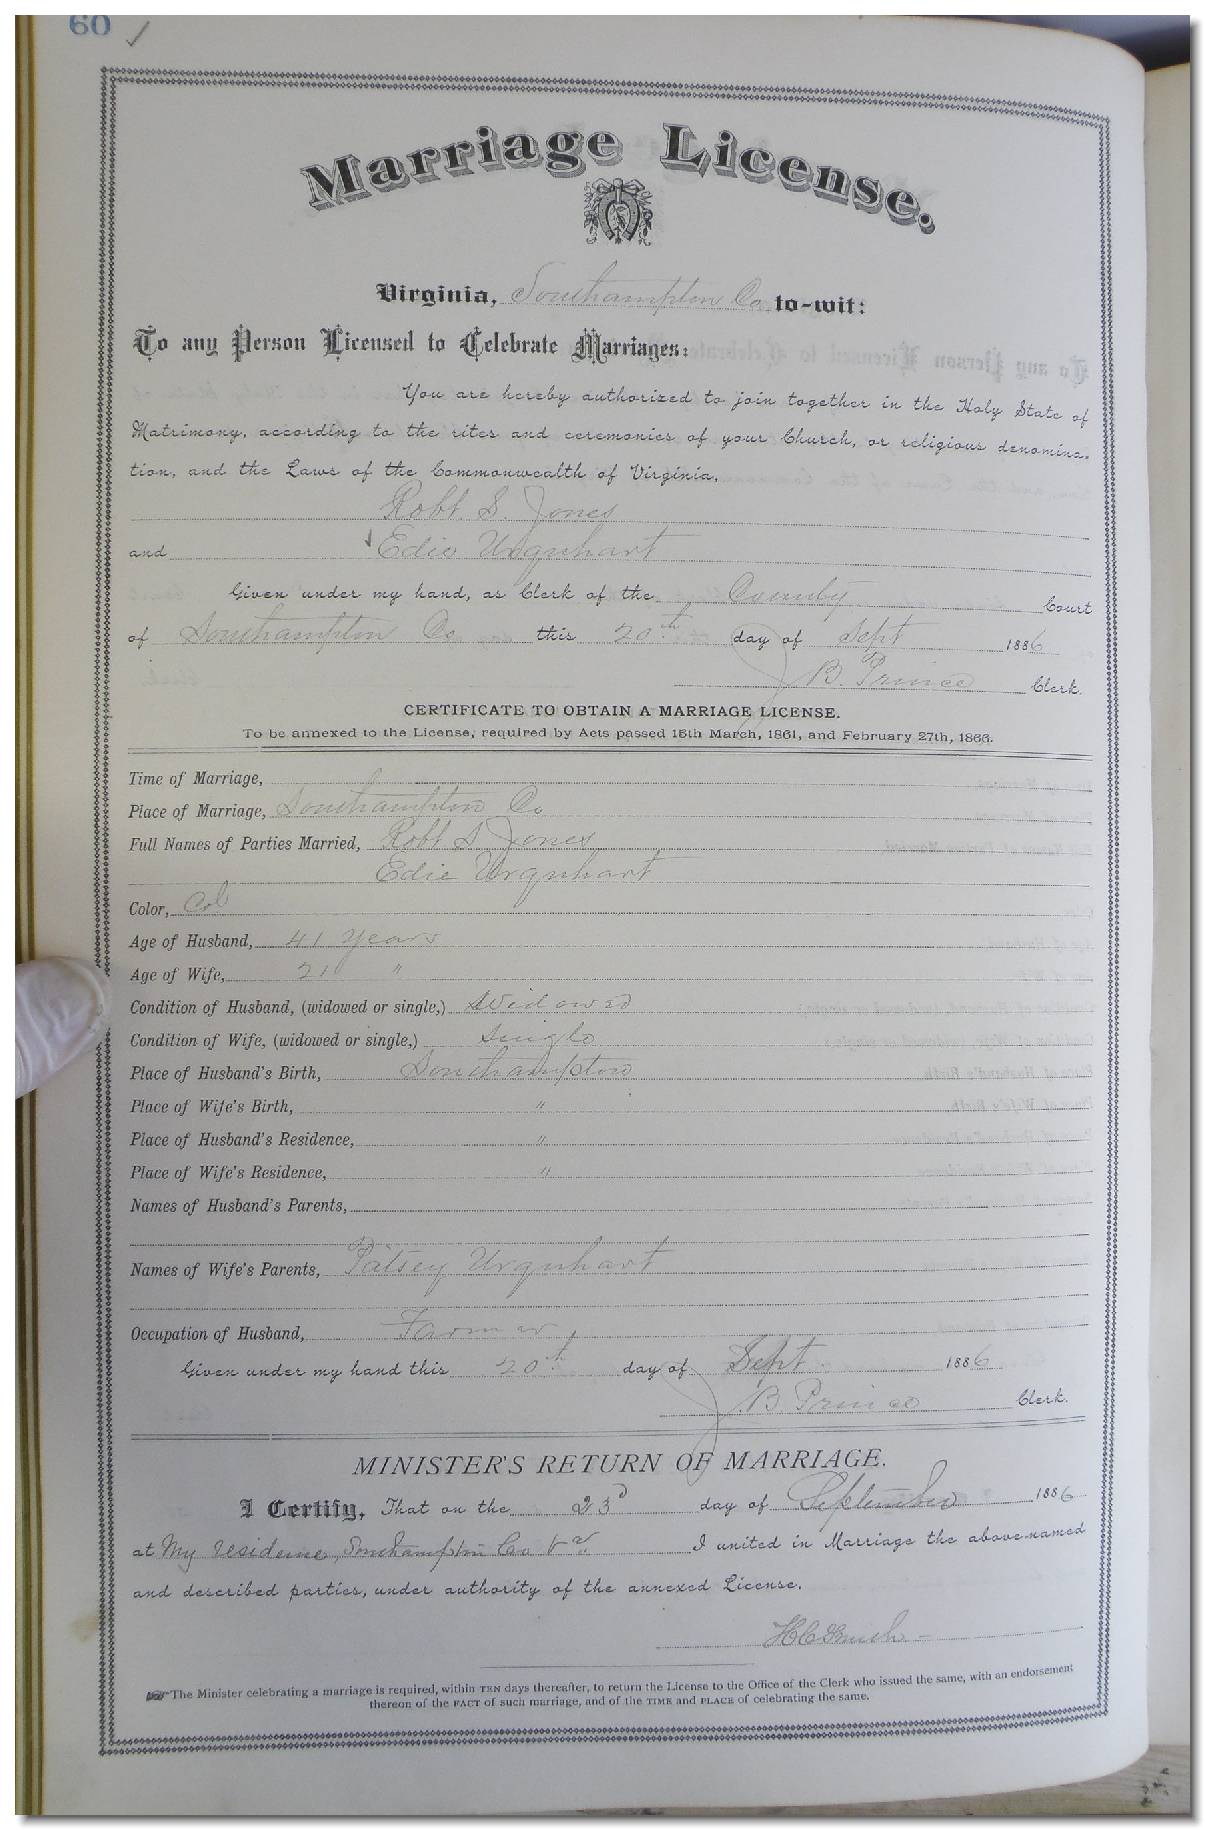 60 ✓
Marriage License.
Virginia, Southampton Co to-wit:
To any Person Licensed to Celebrate Marriages:
You are hereby authorized to join together in the Holy State of
Matrimony, according to the rites and ceremonies of your Church, or religious denomina-
tion, and the Laws of the Commonwealth of Virginia,
Robt. S. Jones
and Edie Urquhart
Given under my hand, as Clerk of the County Court
of Southampton Co this 20th day of Sept 1886
B. Prince Clerk.
CERTIFICATE TO OBTAIN A MARRIAGE LICENSE.
To be annexed to the License, required by Acts passed 15th March, 1861, and February 27th, 1866.
Time of Marriage,
Place of Marriage, Southampton Co
Full Names of Parties Married, Robt S. Jones
Edie Urquhart
Color, Col
Age of Husband, 41 years
Age of Wife, 21 "
Condition of Husband, (widowed or single,) Widowed
Condition of Wife, (widowed or single,) Single
Place of Husband's Birth, Southampton
Place of Wife's Birth, "
Place of Husband's Residence, "
Place of Wife's Residence, "
Names of Husband's Parents,
Names of Wife's Parents, Patsey Urquhart
Occupation of Husband, Farmer
Given under my hand this 20th day of Sept 1886
B Prince Clerk.
MINISTER'S RETURN OF MARRIAGE.
I Certify, That on the 23d day of September 1886
at My residence, Southampton Co Va I united in Marriage the above-named
and described parties, under authority of the annexed License.
H C Smith
The Minister celebrating a marriage is required, within TEN days thereafter, to return the License to the Office of the Clerk who issued the same, with an endorsement
thereon of the FACT of such marriage, and of the TIME and PLACE of celebrating the same.